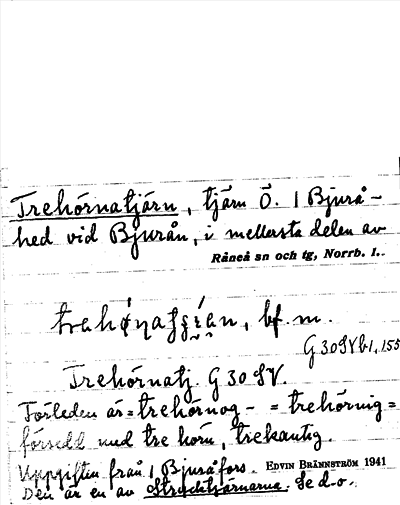 Trehörnatjärn, tjärn Ö. i Bjurå-
hed vid Bjurån, i mellersta delen av
Råneå sn och tg, Norrb. l..
bf. m.
G30SVb1, 155
Trehörnatj. G30SV.
Förleden är = trehörnog- = trehörnig =
försedd med tre hörn, trekantig.
Uppgiften från i Bjuråfors. EDVIN BRÄNNSTRÖM 1941
Den är en av Strycktjärnarna. Se d.o.